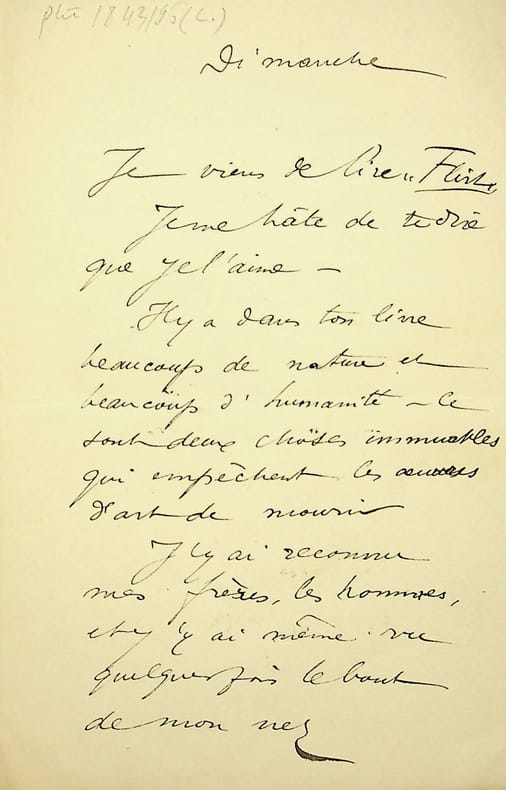 1843/95 (L.)
Dimanche
Je viens de lire „Flirt„
Je me hâte de te dire
que je l'aime —
Il y a dans ton livre
beaucoup de nature et
beaucoup d'humanité — Ce
sont deux choses immuables
qui empêchent les œuvres
d'art de mourir
J'y ai reconnu
mes frères, les hommes,
et j'y ai même vu
quelquefois le bout
de mon nez